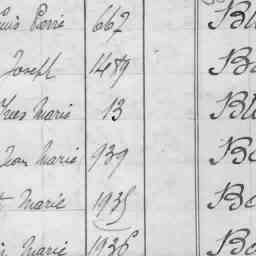 Louis Pierre 662 Bu
Joseph 1489 Bo
Yves Marie 13 Bu
Jean Marie 939 Bo
Marie 1935 Bo
Marie 1936 Bo